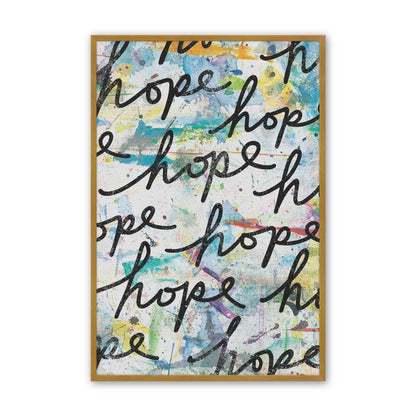 hope h
hope
e hope h
ope hope
hope h
pe hope